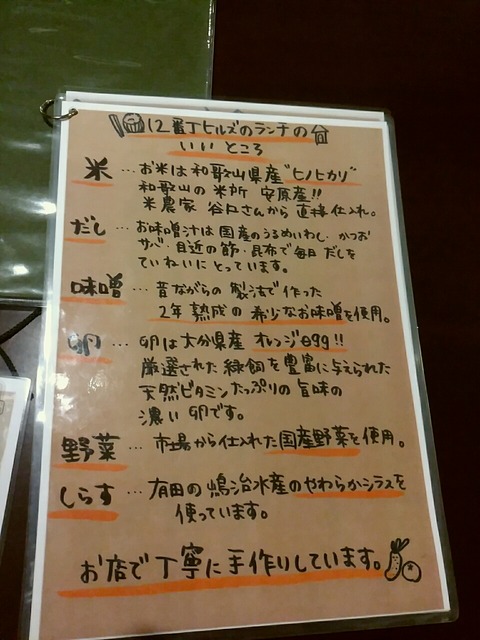 12番丁ヒルズのランチの
いいところ
米…お米は和歌山県産"ヒノヒカリ"
和歌山の米所 安原産!!
米農家 谷口さんから直接仕入れ。
だし…お味噌汁は国産のうるめいわし・かつお
サバ・目近の節・昆布で毎日だしを
ていねいにとっています。
味噌…昔ながらの製法で作った
2年熟成の希少なお味噌を使用。
卵…卵は大分県産 オレンジegg!!
厳選された緑餌を豊富に与えられた
天然ビタミンたっぷりの旨味の
濃い卵です。
野菜…市場から仕入れた国産野菜を使用。
しらす…有田の嶋治水産のやわらかシラスを
使っています。
お店で丁寧に手作りしています。